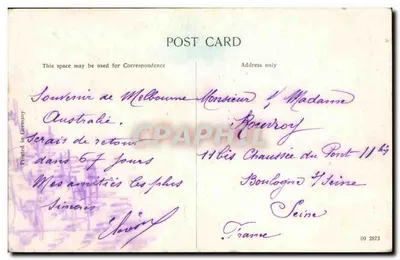 POST CARD
This space may be used for Correspondence
Address only
Souvenir de Melbourne
Australie.
Serais de retour
dans 67 jours
Mes amitiés les plus
Monsieur & Madame
11 bis Chaussée du Pont 11 bis
Boulogne s/Seine
Seine
France
Printed in Germany
CPARAMA
09 2873